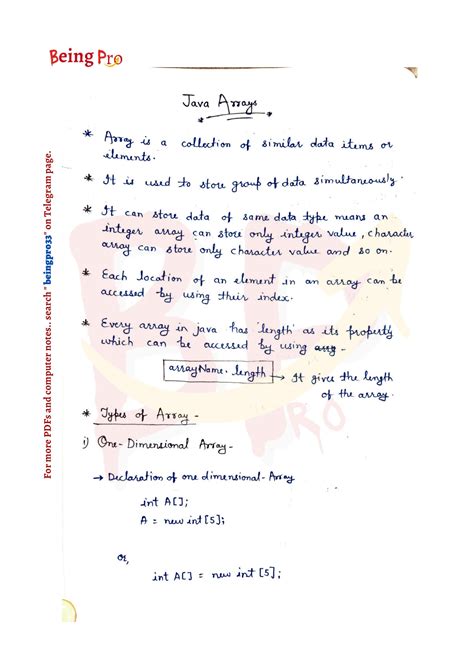 Being Pro
For more PDFs and computer notes.. search "beingpro33" on Telegram page.
Java Arrays
* Array is a collection of similar data items or
elements.
* It is used to store group of data simultaneously.
* It can store data of same data type means an
integer array can store only integer value, character
array can store only character value and so on.
* Each location of an element in an array can be
accessed by using their index.
* Every array in java has 'length' as its property
which can be accessed by using -
arrayName.length → It gives the length
of the array.
* Types of Array -
i) One-Dimensional Array-
→ Declaration of one dimensional-Array
int A[];
A = new int [5];
or,
int A[] = new int [5];
BP
PRO